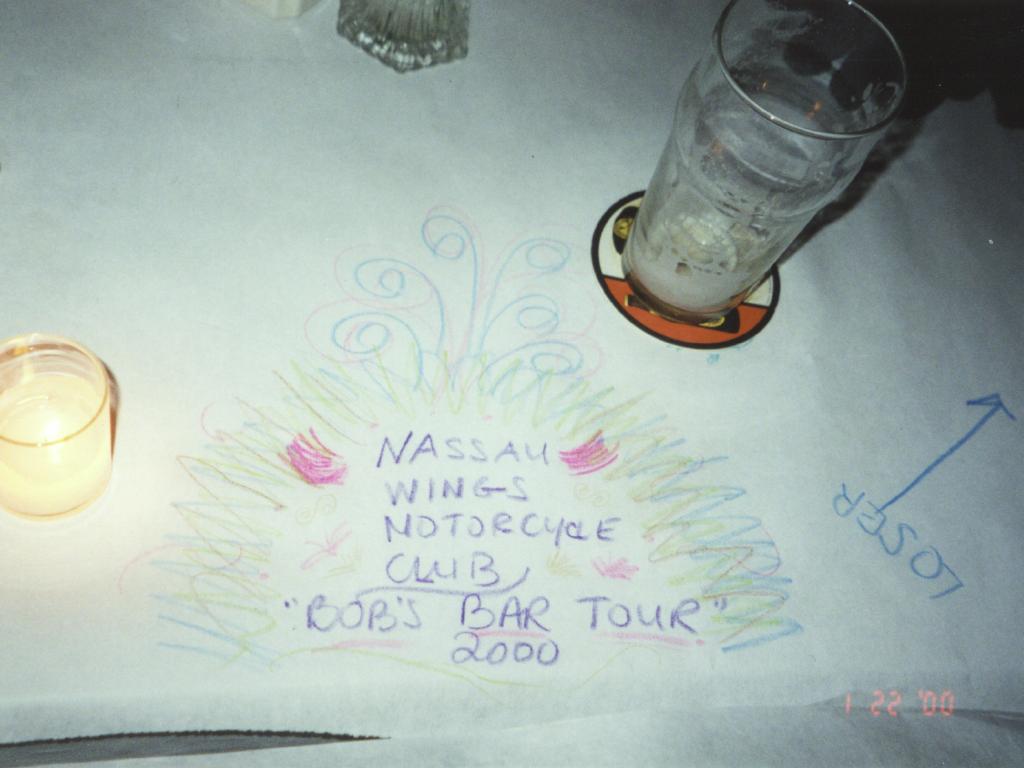 NASSAU
WINGS
MOTORCYCLE
CLUB
"BOB'S BAR TOUR"
2000
LOSER
1 22 '00